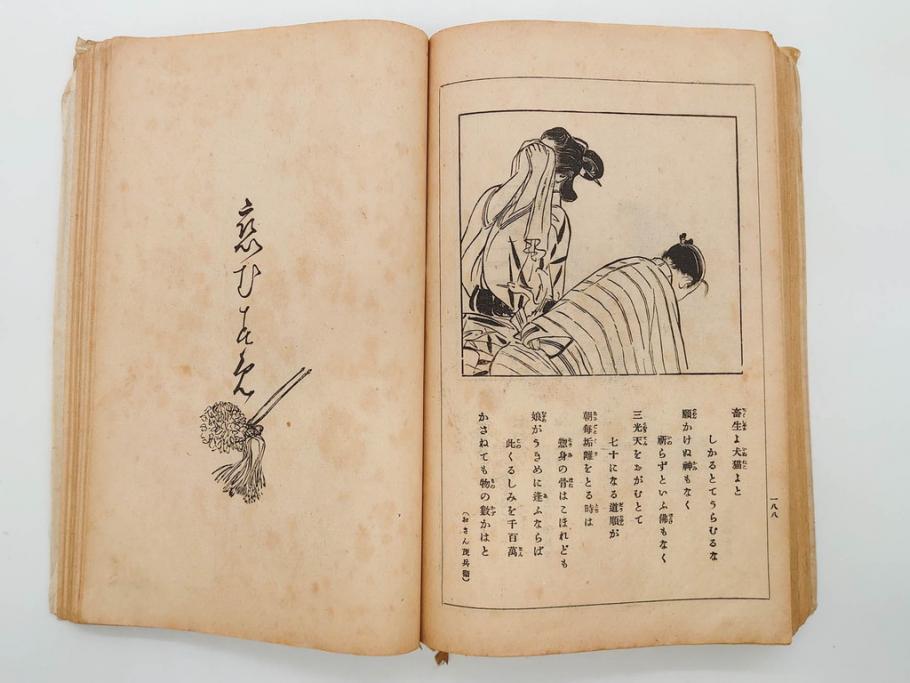 一八八
畜生よ犬猫よと
しかるとてうらむるな
願かけぬ神もなく
祈らずといふ佛もなく
三光天をおがむとて
七十になる道順が
朝毎垢離をとる時は
惣身の骨はこほれども
娘がうきめに逢ふならば
此くるしみを千百萬
かさねても物の數かはと
(おさん茂兵衞)